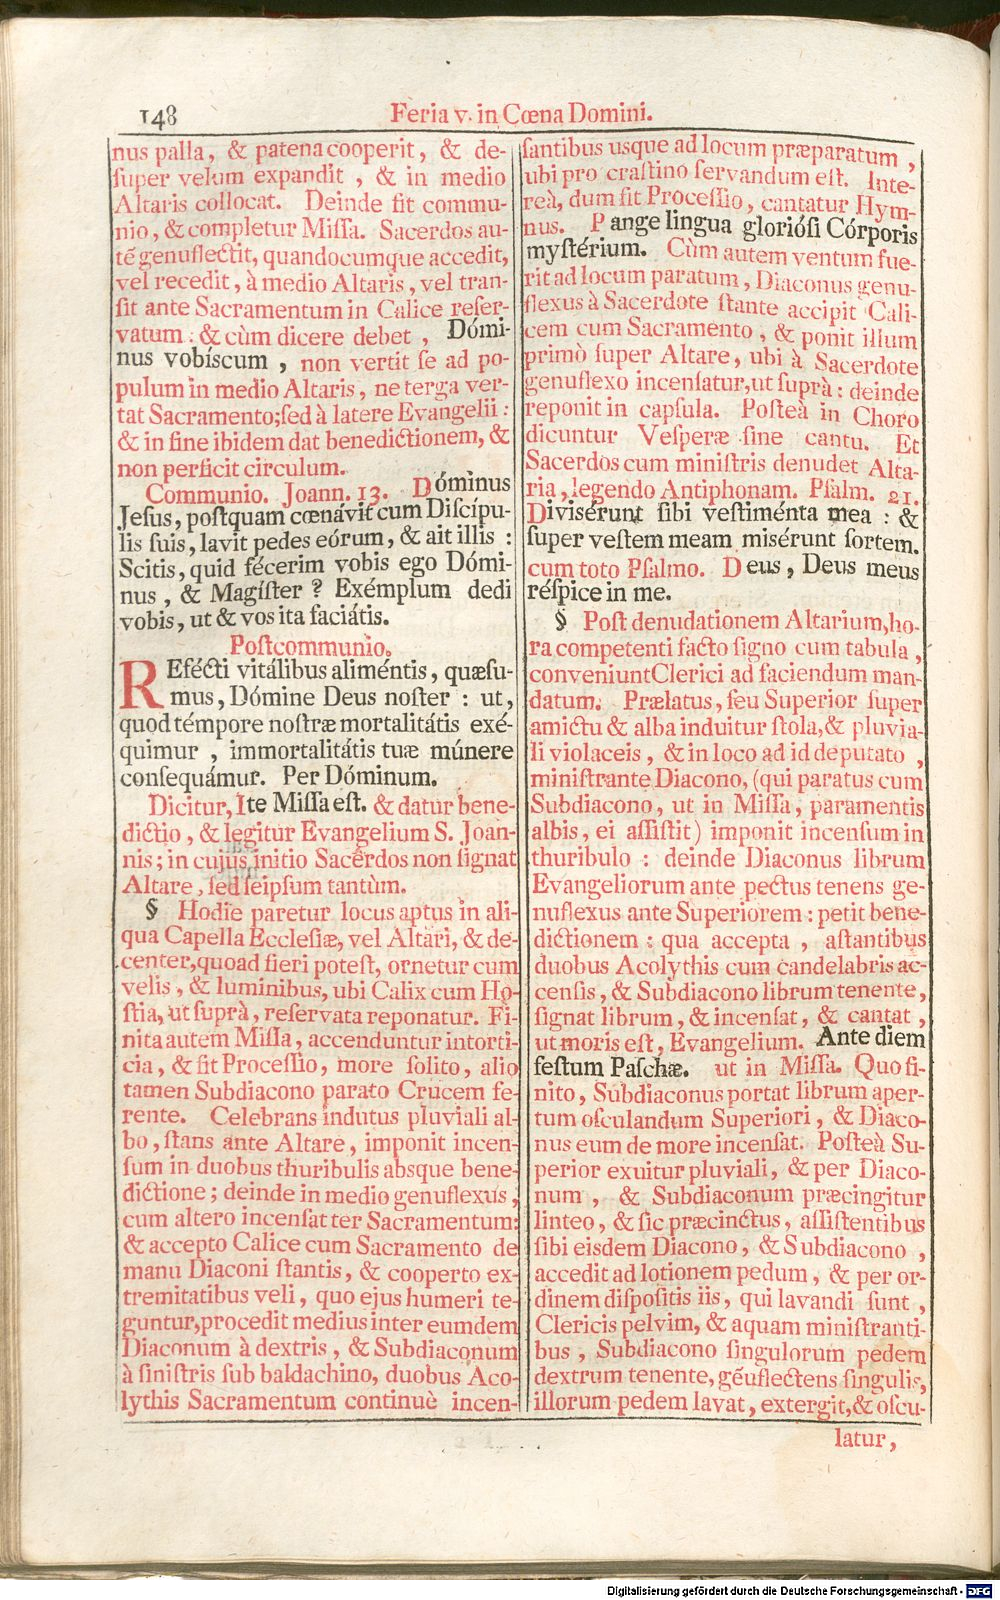 148
Feria v. in Cœna Domini.
nus palla, & patena cooperit, & de-
ſuper velum expandit, & in medio
Altaris collocat. Deinde fit commu-
nio, & completur Miſſa. Sacerdos au-
tē genuflectit, quandocumque accedit,
vel recedit, à medio Altaris, vel tran-
ſit ante Sacramentum in Calice reſer-
vatum: & cùm dicere debet, Dómi-
nus vobíscum, non vertit ſe ad po-
pulum in medio Altaris, ne terga ver-
tat Sacramento; ſed à latere Evangelii:
& in fine ibidem dat benedictionem, &
non perficit circulum.
Communio. Joann. 13. Dóminus
Jeſus, poſtquam cœnávit cum Diſcípu-
lis ſuis, lavit pedes eórum, & ait illis:
Scitis, quid fécerim vobis ego Dómi-
nus, & Magíſter? Exémplum dedi
vobis, ut & vos ita faciátis.
Poſtcommunio.
REfécti vitálibus aliméntis, quæſu-
mus, Dómine Deus noſter: ut,
quod témpore noſtræ mortalitátis exé-
quimur, immortalitátis tuæ múnere
conſequámur. Per Dóminum.
Dicitur, Ite Miſſa eſt. & datur bene-
dictio, & legitur Evangelium S. Joan-
nis; in cujus initio Sacerdos non ſignat
Altare, ſed ſeipſum tantùm.
§ Hodie paretur locus aptus in ali-
qua Capella Eccleſiæ, vel Altari, & de-
center, quoad fieri poteſt, ornetur cum
velis, & luminibus, ubi Calix cum Ho-
ſtia, ut ſuprà, reſervata reponatur. Fi-
nita autem Miſſa, accenduntur intorti-
cia, & fit Proceſſio, more ſolito, alio
tamen Subdiacono parato Crucem fe-
rente. Celebrans indutus pluviali al-
bo, ſtans ante Altare, imponit incen-
ſum in duobus thuribulis absque bene-
dictione; deinde in medio genuflexus,
cum altero incenſat ter Sacramentum:
& accepto Calice cum Sacramento de
manu Diaconi ſtantis, & cooperto ex-
tremitatibus veli, quo ejus humeri te-
guntur, procedit medius inter eumdem
Diaconum à dextris, & Subdiaconum
à ſiniſtris ſub baldachino, duobus Aco-
lythis Sacramentum continuè incen-
ſantibus usque ad locum præparatum,
ubi pro craſtino ſervandum eſt. Inte-
reà, dum fit Proceſſio, cantatur Hym-
nus. Pange lingua glorióſi Córporis
myſtérium. Cùm autem ventum fue-
rit ad locum paratum, Diaconus genu-
flexus à Sacerdote ſtante accipit Cali-
cem cum Sacramento, & ponit illum
primò ſuper Altare, ubi à Sacerdote
genuflexo incenſatur, ut ſuprà: deinde
reponit in capſula. Poſteà in Choro
dicuntur Veſperæ ſine cantu. Et
Sacerdos cum miniſtris denudet Alta-
ria, legendo Antiphonam. Pſalm. 21.
Divisérunt ſibi veſtiménta mea: &
ſuper veſtem meam misérunt ſortem.
cum toto Pſalmo. Deus, Deus meus
réſpice in me.
§ Poſt denudationem Altarium, ho-
ra competenti facto ſigno cum tabula,
conveniunt Clerici ad faciendum man-
datum. Prælatus, ſeu Superior ſuper
amictu & alba induitur ſtola, & pluvia-
li violaceis, & in loco ad id deputato,
miniſtrante Diacono, (qui paratus cum
Subdiacono, ut in Miſſa, paramentis
albis, ei aſſiſtit) imponit incenſum in
thuribulo: deinde Diaconus librum
Evangeliorum ante pectus tenens ge-
nuflexus ante Superiorem: petit bene-
dictionem: qua accepta, aſtantibus
duobus Acolythis cum candelabris ac-
cenſis, & Subdiacono librum tenente,
ſignat librum, & incenſat, & cantat,
ut moris eſt, Evangelium. Ante diem
feſtum Paſchæ. ut in Miſſa. Quo fi-
nito, Subdiaconus portat librum aper-
tum oſculandum Superiori, & Diaco-
nus eum de more incenſat. Poſteà Su-
perior exuitur pluviali, & per Diaco-
num, & Subdiaconum præcingitur
linteo, & ſic præcinctus, aſſiſtentibus
ſibi eisdem Diacono, & Subdiacono,
accedit ad lotionem pedum, & per or-
dinem diſpoſitis iis, qui lavandi ſunt,
Clericis pelvim, & aquam miniſtranti-
bus, Subdiacono ſingulorum pedem
dextrum tenente, gēuflectens ſingulis,
illorum pedem lavat, extergit, & oſcu-
latur,
Digitalisierung gefördert durch die Deutsche Forschungsgemeinschaft - DFG